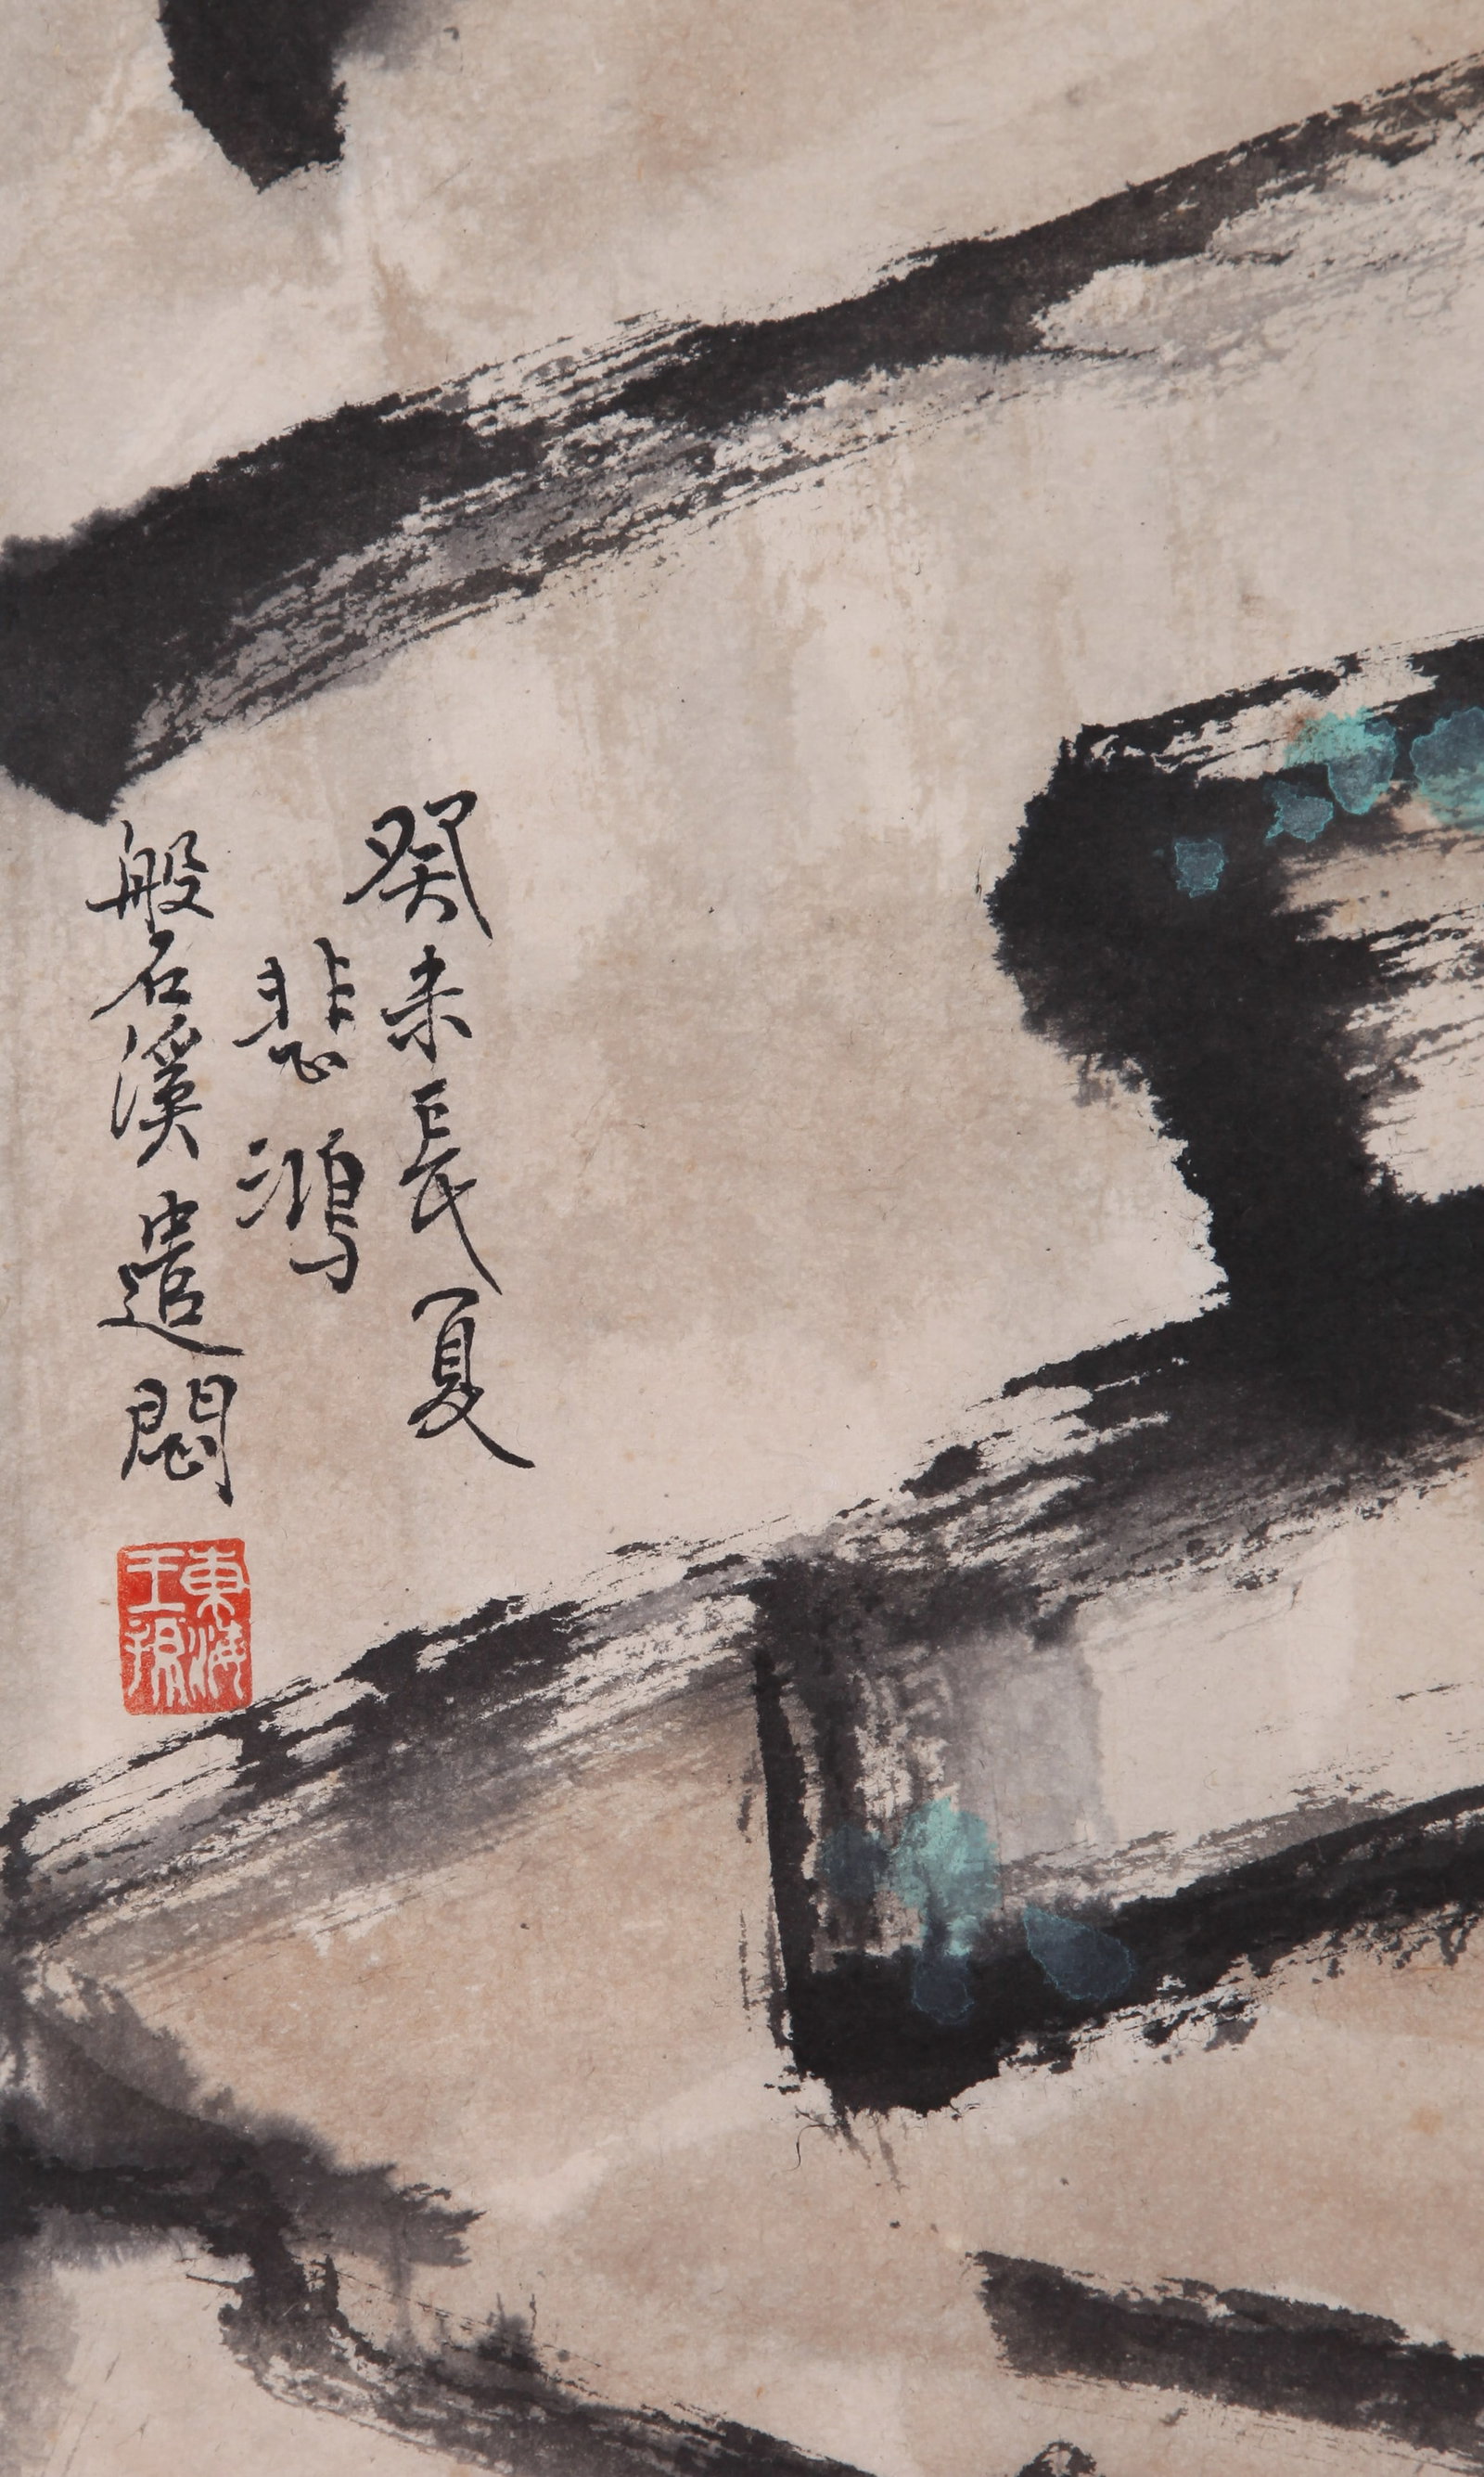 癸未長夏
悲鴻
般石溪遣悶
東海
王孫